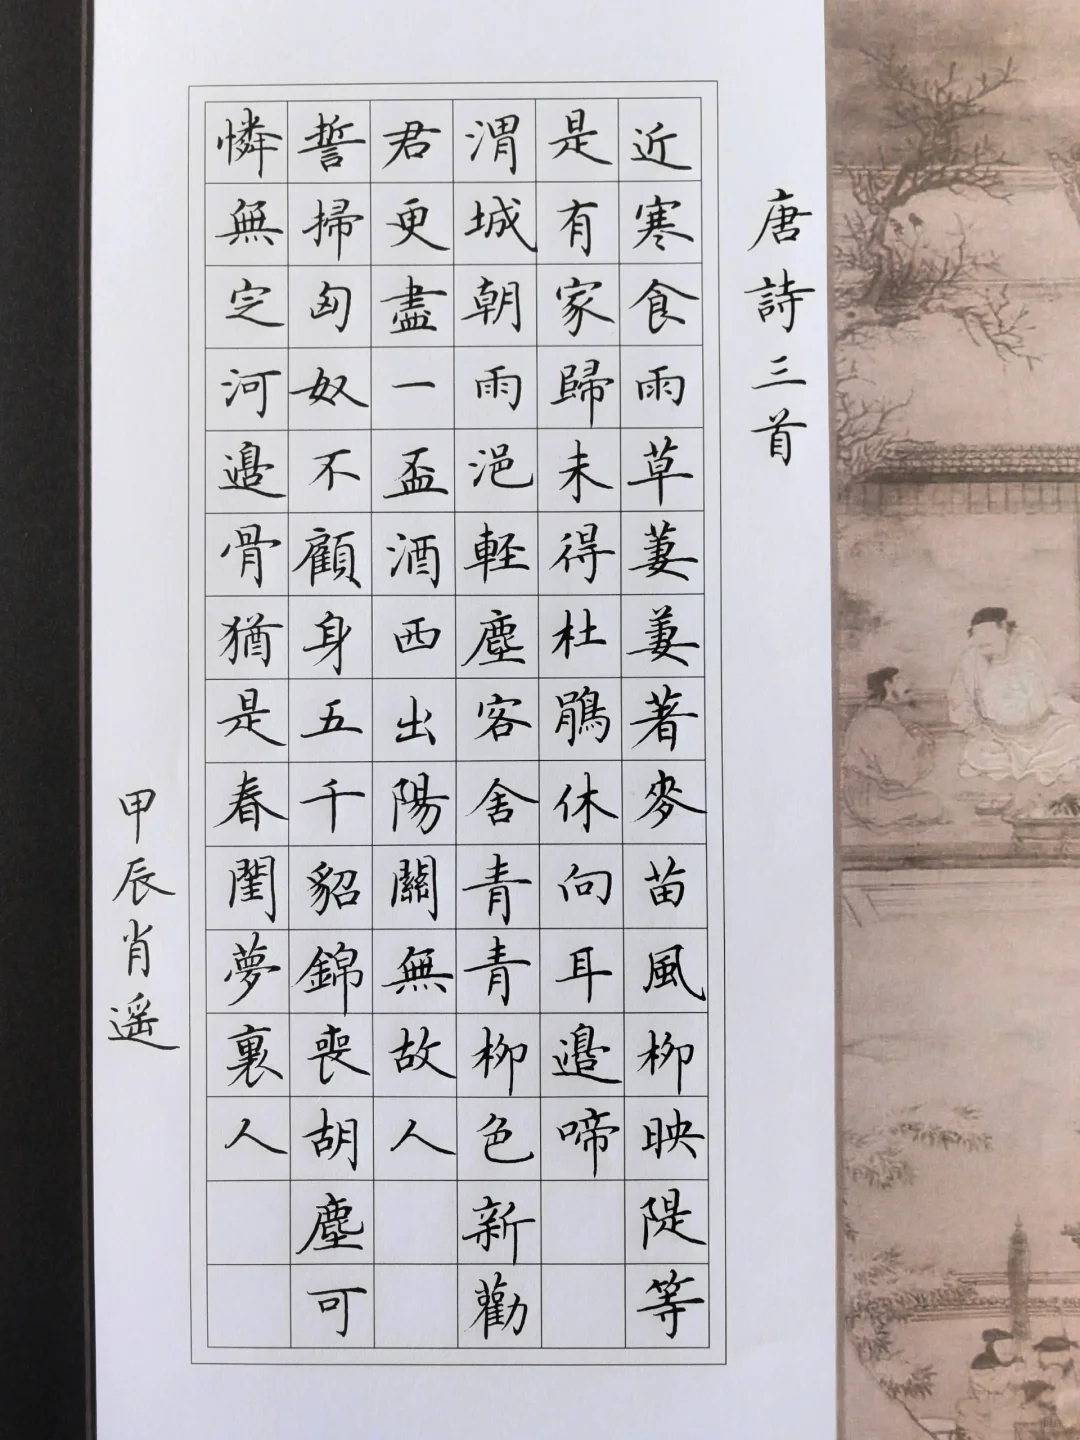 唐詩三首
近寒食雨草萋萋著麥苗風柳映隄等
是有家歸未得杜鵑休向耳邊啼
渭城朝雨浥輕塵客舍青青柳色新勸
君更盡一盃酒西出陽關無故人
誓掃匈奴不顧身五千貂錦喪胡塵可
憐無定河邊骨猶是春閨夢裏人
甲辰肖遥